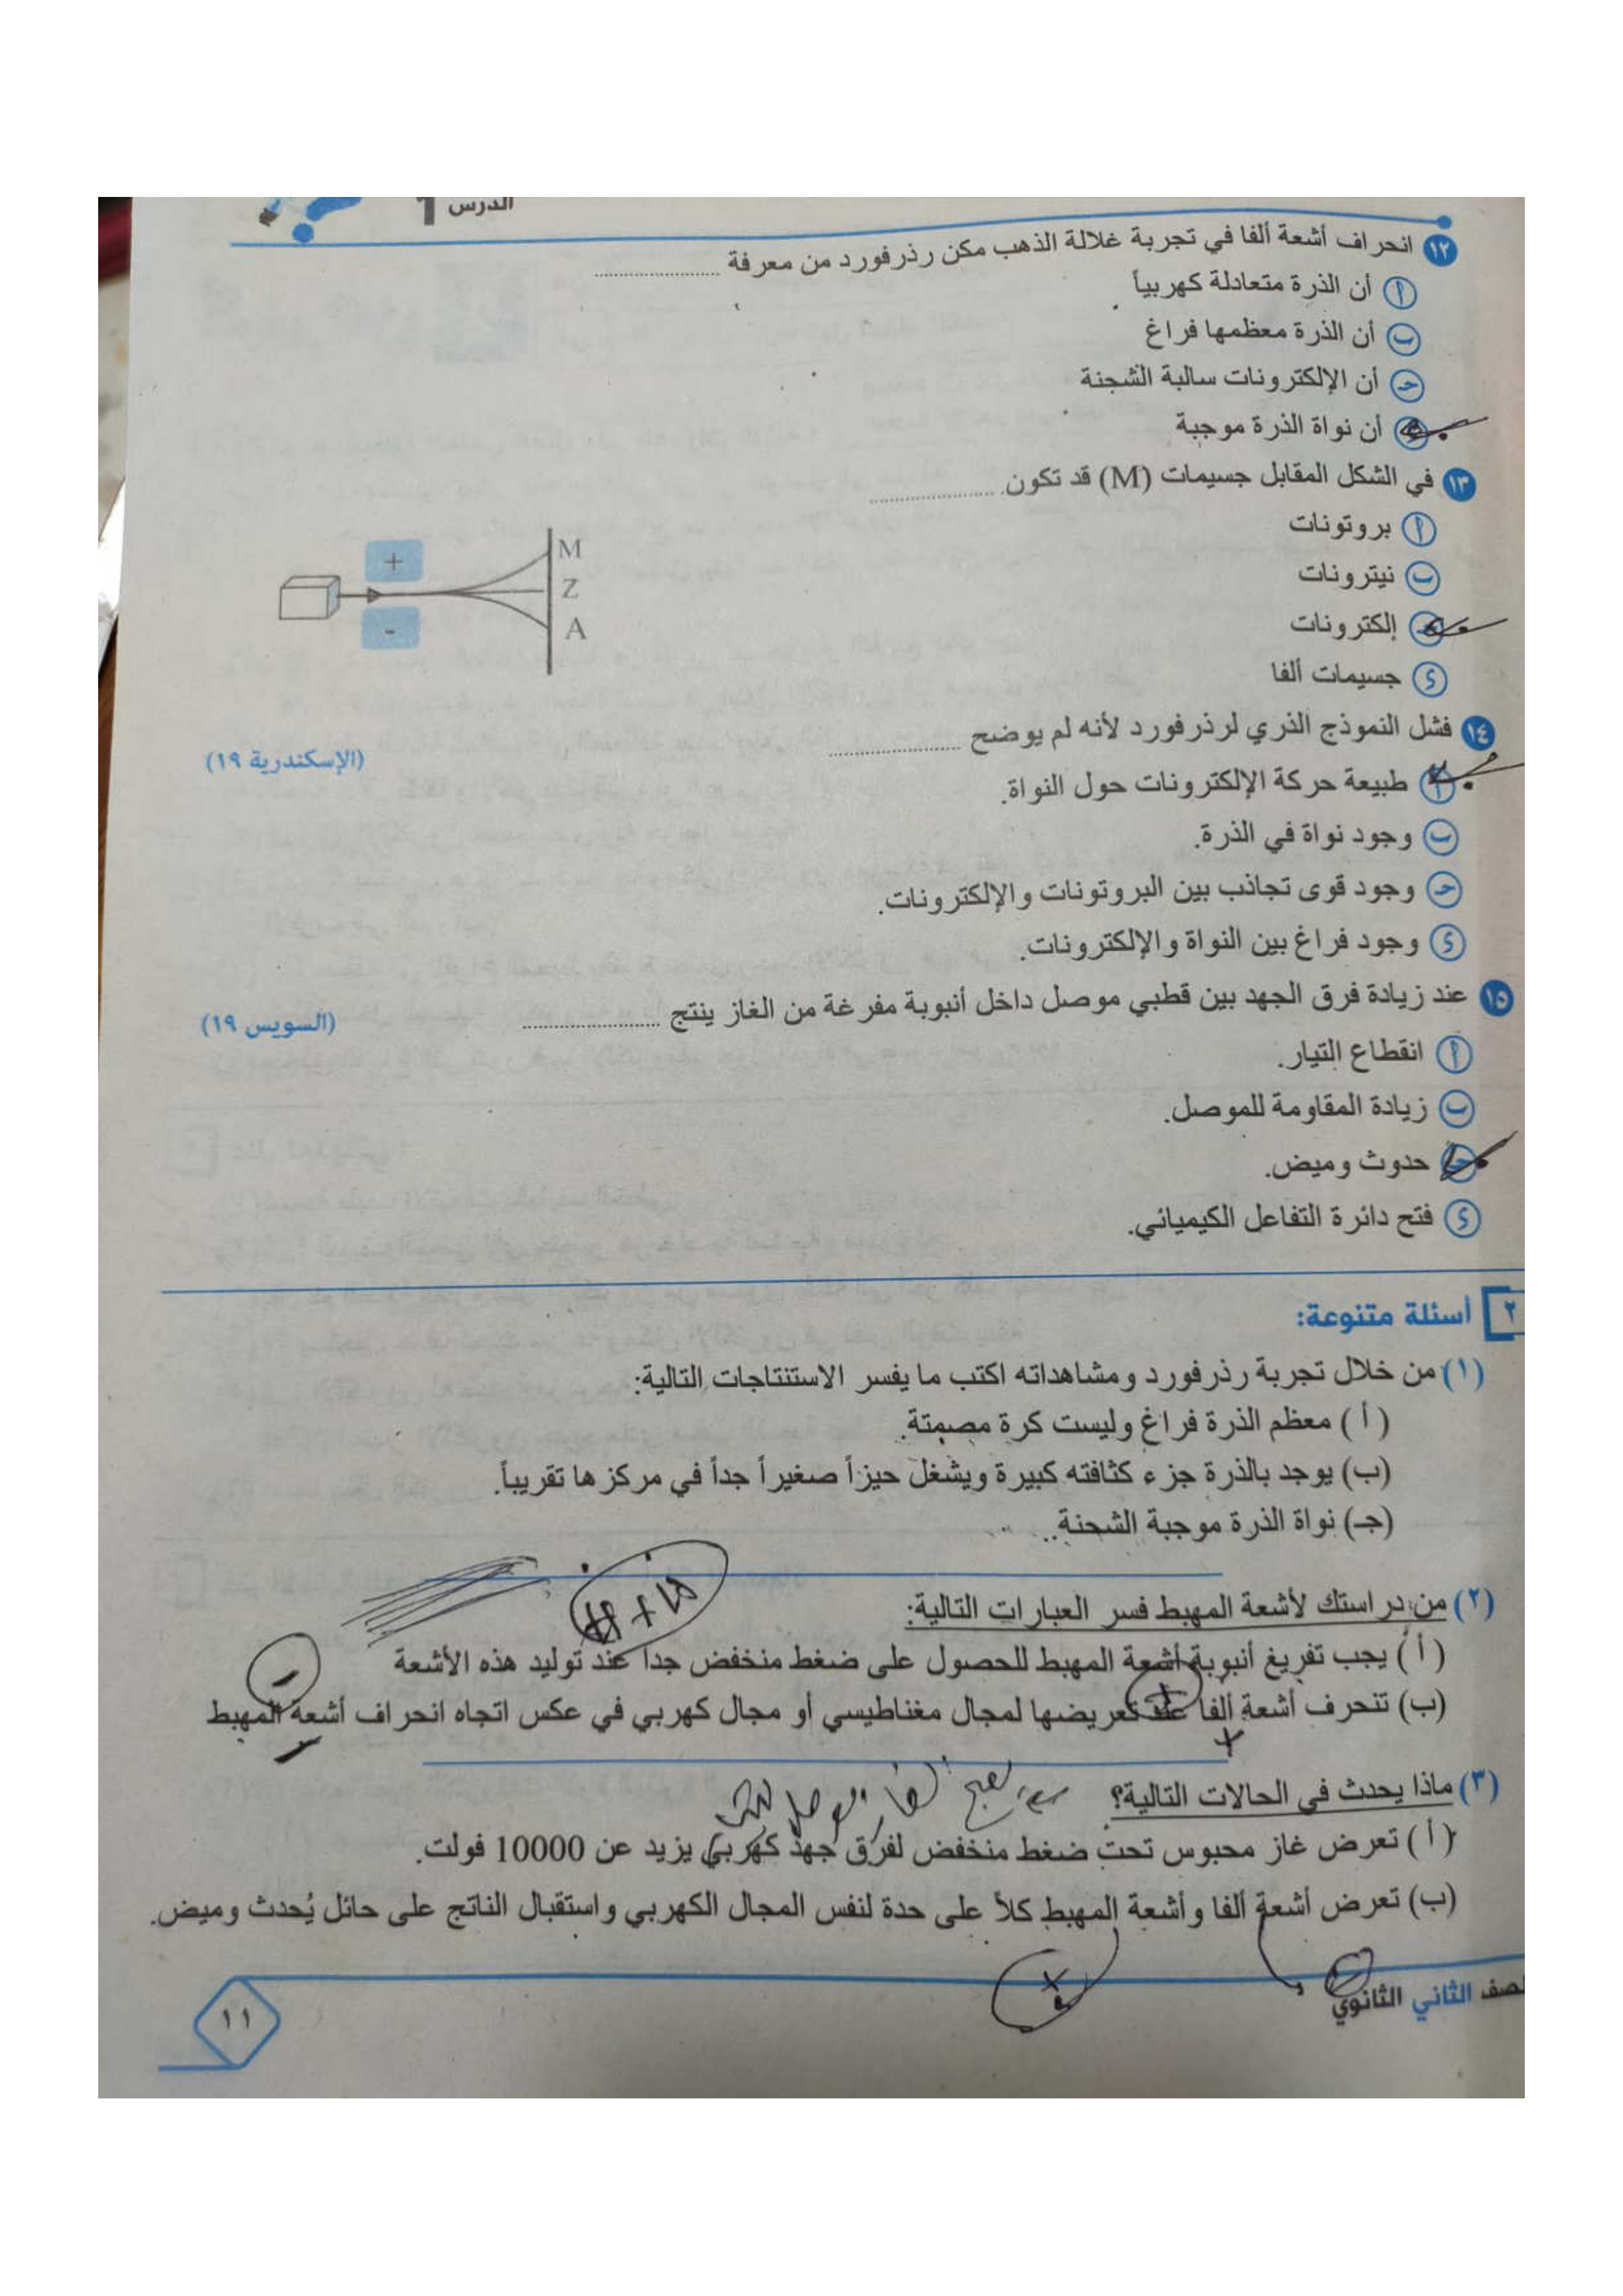 الدرس 1
١٢ انحراف أشعة ألفا في تجربة غلالة الذهب مكن رذرفورد من معرفة ....................
أ أن الذرة متعادلة كهربياً
ب أن الذرة معظمها فراغ
حـ أن الإلكترونات سالبة الشحنة
أن نواة الذرة موجبة
١٣ في الشكل المقابل جسيمات (M) قد تكون ....................
أ بروتونات
ب نيترونات
إلكترونات
د جسيمات ألفا
+
-
M
Z
A
١٤ فشل النموذج الذري لرذرفورد لأنه لم يوضح .................... (الإسكندرية ١٩)
أ طبيعة حركة الإلكترونات حول النواة.
ب وجود نواة في الذرة.
حـ وجود قوى تجاذب بين البروتونات والإلكترونات.
د وجود فراغ بين النواة والإلكترونات.
١٥ عند زيادة فرق الجهد بين قطبي موصل داخل أنبوبة مفرغة من الغاز ينتج .................... (السويس ١٩)
أ انقطاع التيار.
ب زيادة المقاومة للموصل.
حـ حدوث وميض.
د فتح دائرة التفاعل الكيميائي.
٢ أسئلة متنوعة:
(١) من خلال تجربة رذرفورد ومشاهداته اكتب ما يفسر الاستنتاجات التالية:
(أ) معظم الذرة فراغ وليست كرة مصمتة.
(ب) يوجد بالذرة جزء كثافته كبيرة ويشغل حيزاً صغيراً جداً في مركزها تقريباً.
(جـ) نواة الذرة موجبة الشحنة.
(٢) من دراستك لأشعة المهبط فسر العبارات التالية:
(أ) يجب تفريغ أنبوبة أشعة المهبط للحصول على ضغط منخفض جداً عند توليد هذه الأشعة
-
+
(ب) تنحرف أشعة ألفا عند تعريضها لمجال مغناطيسي أو مجال كهربي في عكس اتجاه انحراف أشعة المهبط
+ -
(٣) ماذا يحدث في الحالات التالية؟
(أ) تعرض غاز محبوس تحت ضغط منخفض لفرق جهد كهربي يزيد عن 10000 فولت.
(ب) تعرض أشعة ألفا وأشعة المهبط كلاً على حدة لنفس المجال الكهربي واستقبال الناتج على حائل يُحدث وميض.
+
لصف الثاني الثانوي
١١